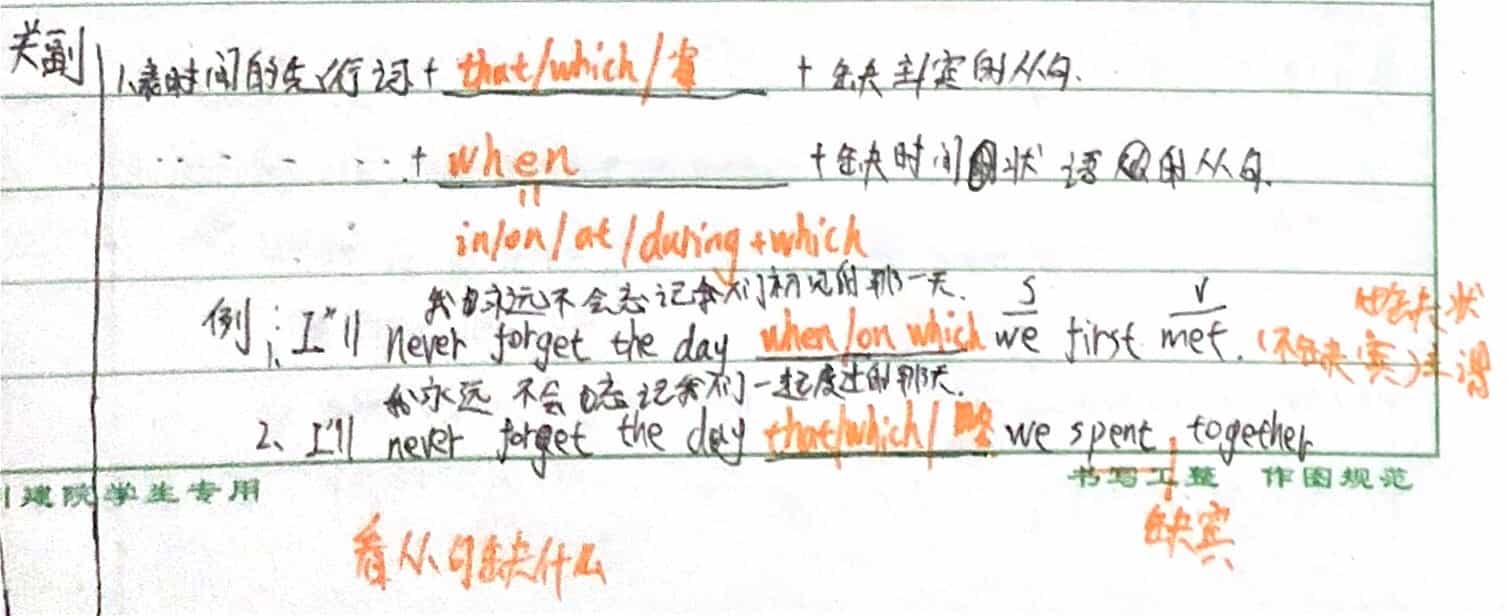 关副
1.表时间的先行词+ that/which/省 +缺主/宾的从句.
..........+ when +缺时间状语的从句.
=
in/on/at/during+which
我永远不会忘记我们初见的那一天. S V
例:1、I'll never forget the day when/on which we first met. (不缺宾)主谓
我永远不会忘记我们一起度过的那天.
2、I'll never forget the day that/which/略 we spent together
建院学生专用 书写工整 作图规范
缺宾
看从句缺什么